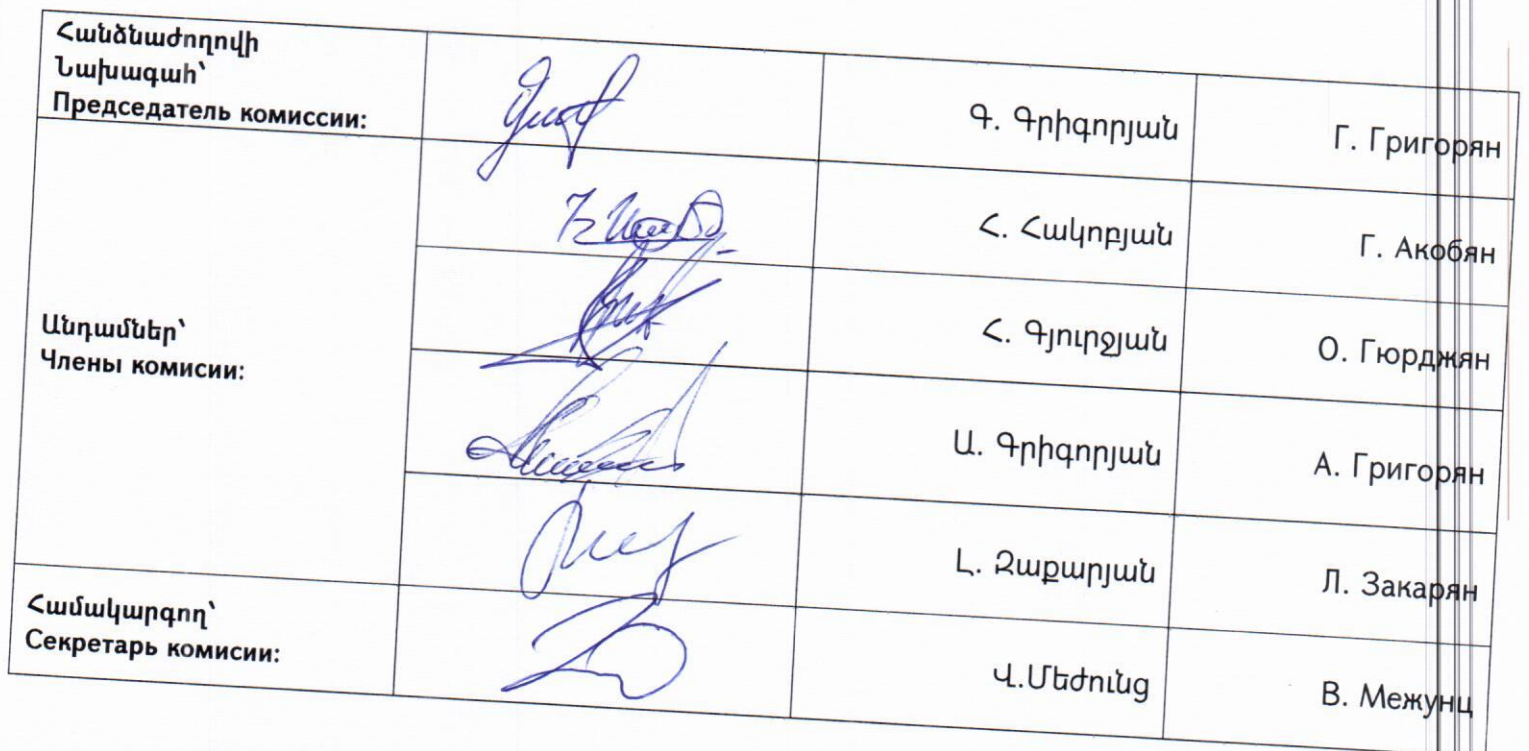 Հանձնաժողովի
Նախագահ՝
Председатель комиссии:
Գ. Գրիգորյան
Г. Григорян
Անդամներ՝
Члены комисии:
Հ. Հակոբյան
Г. Акобян
Հ. Գյուրջյան
О. Гюрджян
Ա. Գրիգորյան
А. Григорян
Լ. Զաքարյան
Л. Закарян
Համակարգող՝
Секретарь комисии:
Վ.Մեժունց
В. Межунц